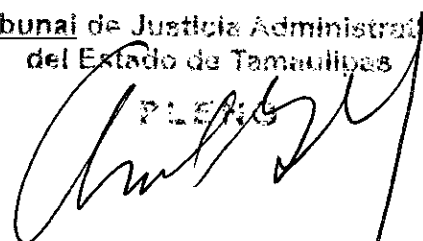 bunal de Justicia Administrat
del Estado de Tamaulipas
PLENO